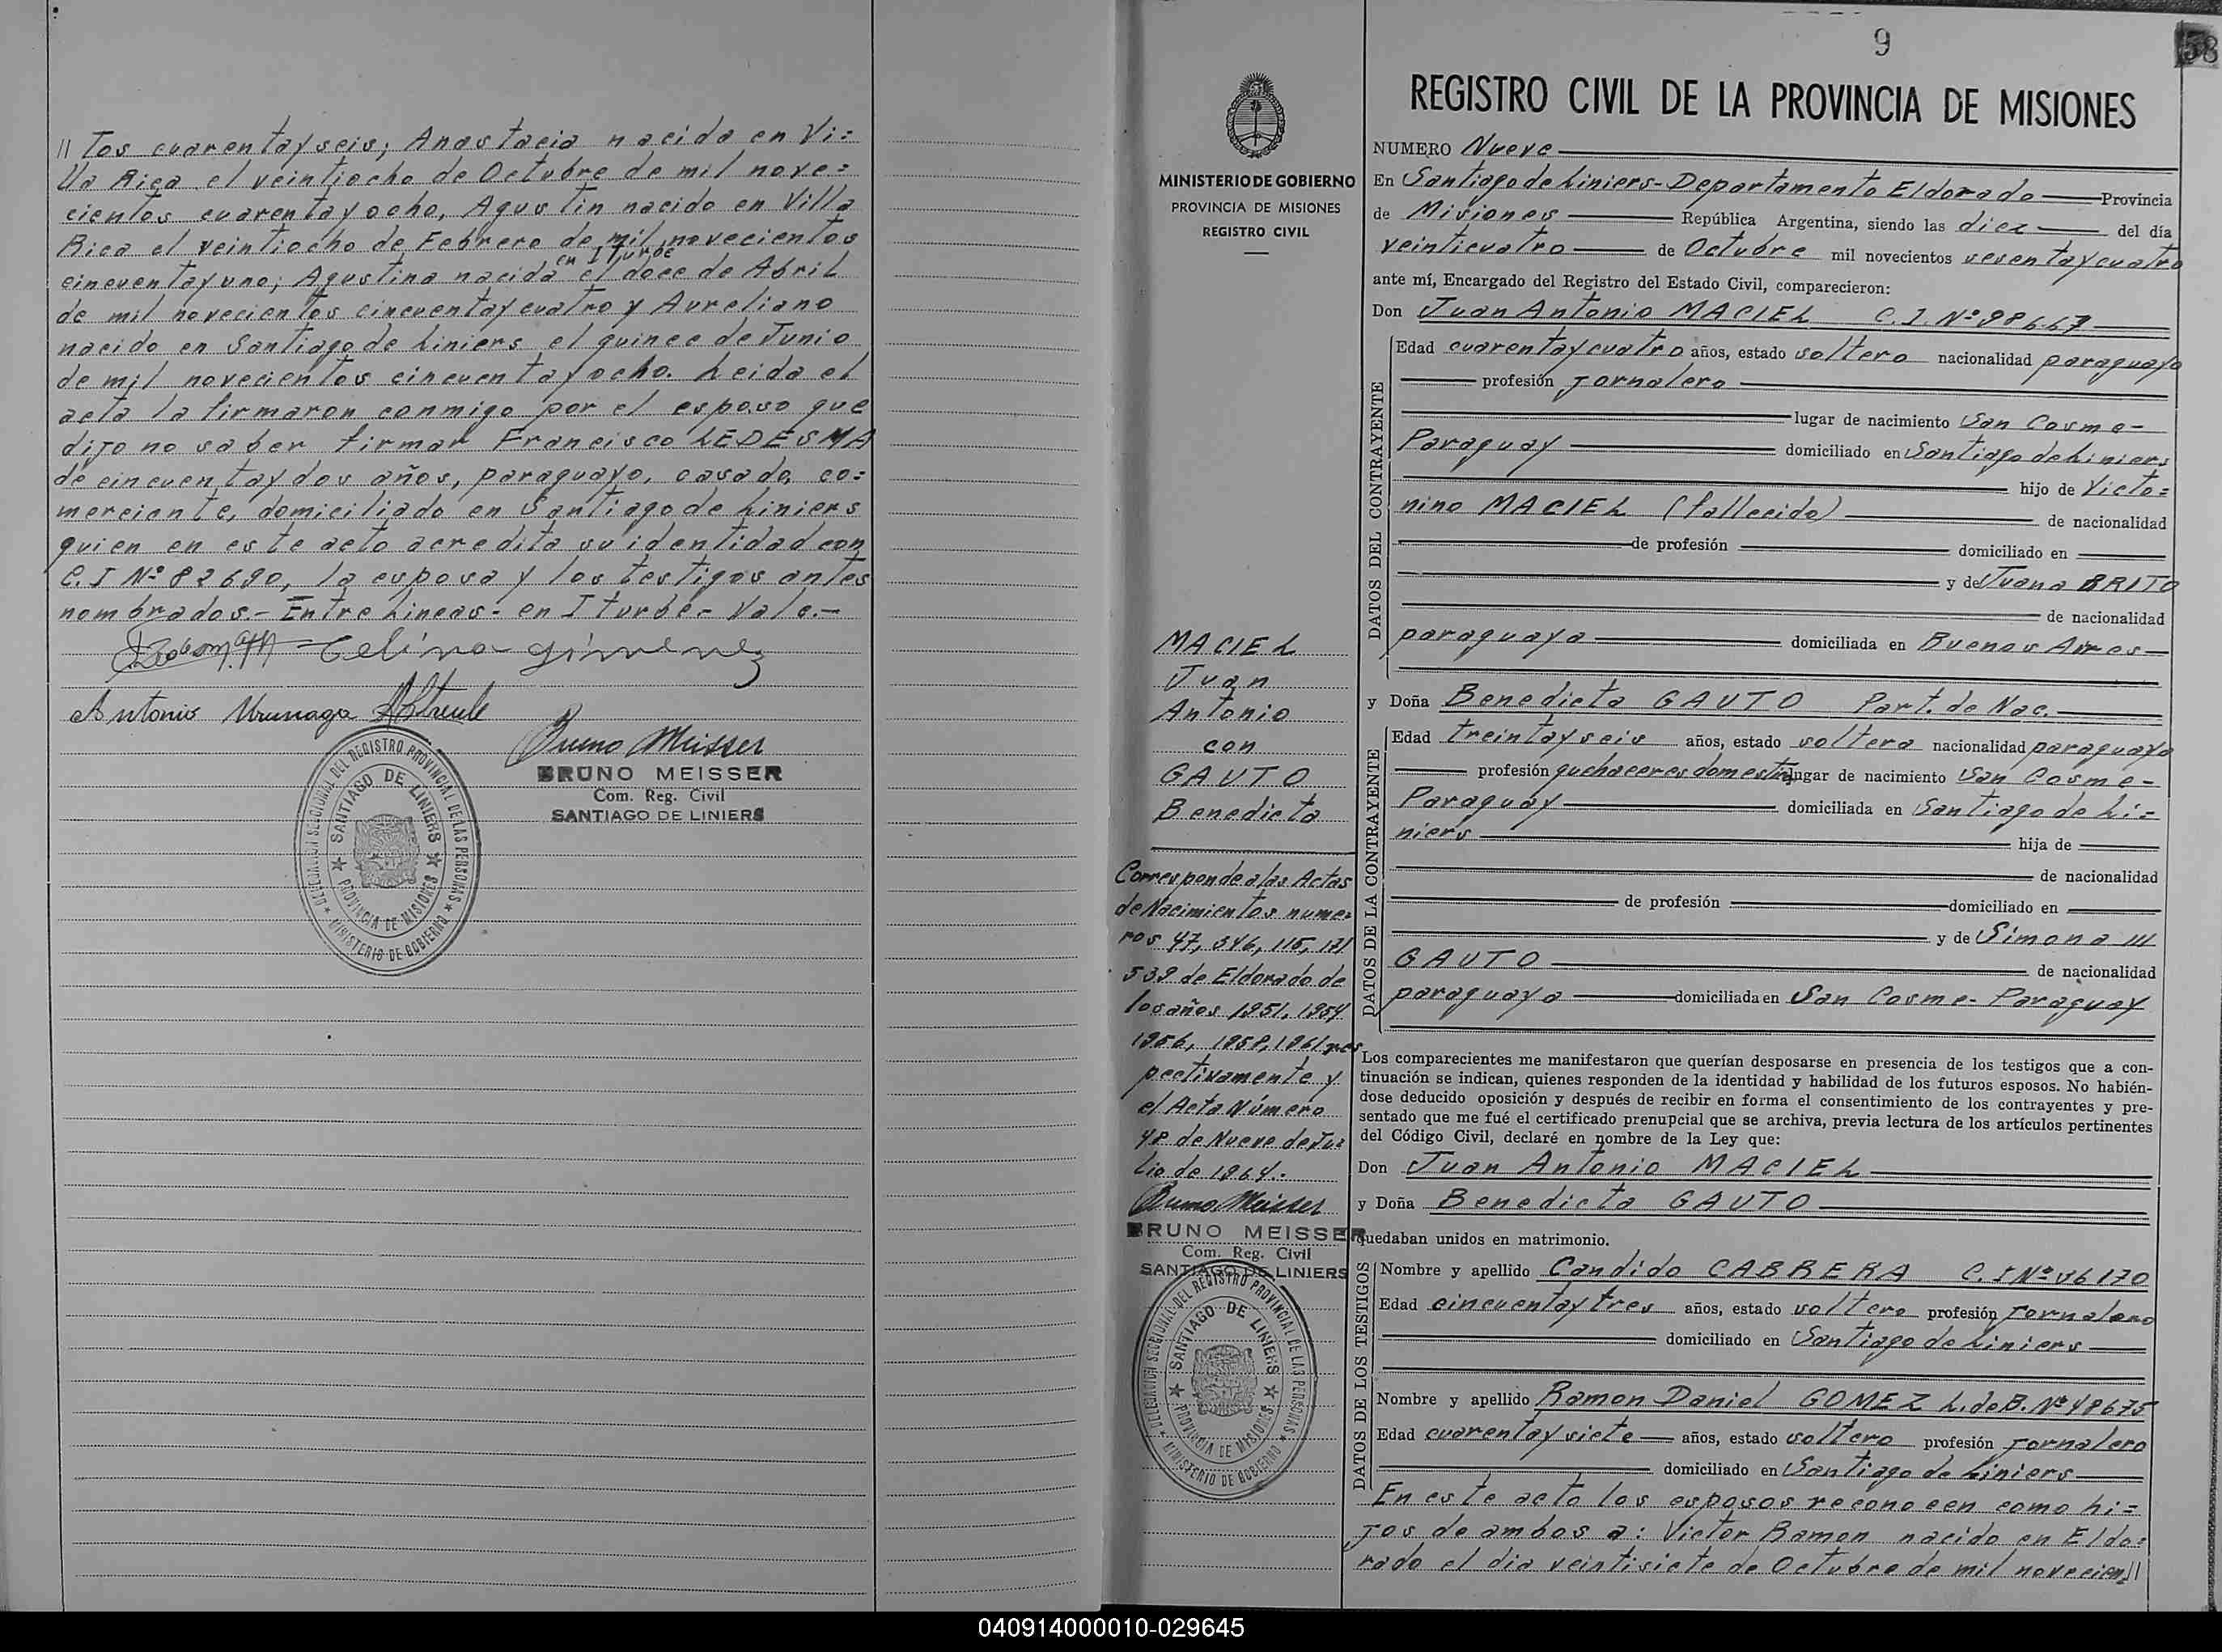 // Tos cuarentayseis; Anastacia nacida en Vi=
lla Rica el veintiocho de Octubre de mil nove=
cientos cuarentayocho, Agustin nacido en Villa
Rica el veintiocho de Febrero de mil novecientos
en Iturbe
cincuentayuno; Agustina nacida el doce de Abril
de mil novecientos cincuentaycuatro y Aureliano
nacido en Santiago de Liniers el quince de Junio
de mil novecientos cincuentayocho. Leida el
acta la firmaron conmigo por el esposo que
dijo no saber firmar Francisco LEDESMA
de cincuentaydos años, paraguayo, casado, co=
merciante, domiciliado en Santiago de Liniers
quien en este acto acredita su identidad con
C.I Nº 82690, la esposa y los testigos antes
nombrados.- Entre Lineas- en Iturbe- Vale.-
Celina gimenez
Antonio
Bruno Meisser
BRUNO MEISSER
Com. Reg. Civil
SANTIAGO DE LINIERS
DELEGACION SECCIONAL DEL REGISTRO PROVINCIAL DE LAS PERSONAS
★ MINISTERIO DE GOBIERNO ★
SANTIAGO DE LINIERS
★ PROVINCIA DE MISIONES ★
9
58
MINISTERIO DE GOBIERNO
PROVINCIA DE MISIONES
REGISTRO CIVIL
MACIEL
Juan
Antonio
con
GAUTO
Benedicta
Corresponde a las Actas
de Nacimientos nume=
ros 47, 346, 115, 171
539 de Eldorado de
los años 1951, 1954
1956, 1958, 1961 res
pectivamente y
el Acta Número
48 de Nueve de Ju=
lio de 1964.-
Bruno Meisser
BRUNO MEISSER
Com. Reg. Civil
SANTIAGO DE LINIERS
DELEGACION SECCIONAL DEL REGISTRO PROVINCIAL DE LAS PERSONAS
★ MINISTERIO DE GOBIERNO ★
SANTIAGO DE LINIERS
★ PROVINCIA DE MISIONES ★
REGISTRO CIVIL DE LA PROVINCIA DE MISIONES
NUMERO Nueve
En Santiago de Liniers-Departamento Eldorado Provincia
de Misiones República Argentina, siendo las diez del día
veinticuatro de Octubre mil novecientos sesentaycuatro
ante mí, Encargado del Registro del Estado Civil, comparecieron:
Don Juan Antonio MACIEL C.I. Nº 98667
DATOS DEL CONTRAYENTE
Edad cuarentaycuatro años, estado soltero nacionalidad paraguayo
profesión jornalero
lugar de nacimiento San Cosme-
Paraguay domiciliado en Santiago de Liniers
hijo de Victo=
nino MACIEL (fallecido) de nacionalidad
de profesión domiciliado en
y de Juana BRITO
de nacionalidad
paraguaya domiciliada en Buenos Aires
y Doña Benedicta GAUTO Part. de Nac.
DATOS DE LA CONTRAYENTE
Edad treintayseis años, estado soltera nacionalidad paraguaya
profesión quehaceres domesti. lugar de nacimiento San Cosme-
Paraguay domiciliada en Santiago de Li=
niers hija de
de nacionalidad
de profesión domiciliado en
y de Simona
GAUTO de nacionalidad
paraguaya domiciliada en San Cosme- Paraguay
Los comparecientes me manifestaron que querían desposarse en presencia de los testigos que a con-
tinuación se indican, quienes responden de la identidad y habilidad de los futuros esposos. No habién-
dose deducido oposición y después de recibir en forma el consentimiento de los contrayentes y pre-
sentado que me fué el certificado prenupcial que se archiva, previa lectura de los artículos pertinentes
del Código Civil, declaré en nombre de la Ley que:
Don Juan Antonio MACIEL
y Doña Benedicta GAUTO
quedaban unidos en matrimonio.
DATOS DE LOS TESTIGOS
Nombre y apellido Candido CABRERA C.I Nº 36170
Edad cincuentaytres años, estado soltero profesión jornalero
domiciliado en Santiago de Liniers
Nombre y apellido Ramon Daniel GOMEZ L.de B. Nº 48675
Edad cuarentaysiete años, estado soltero profesión jornalero
domiciliado en Santiago de Liniers
En este acto los esposos reconocen como hi=
jos de ambos a: Victor Ramon nacido en Eldo=
rado el dia veintisiete de Octubre de mil novecien//
040914000010-029645